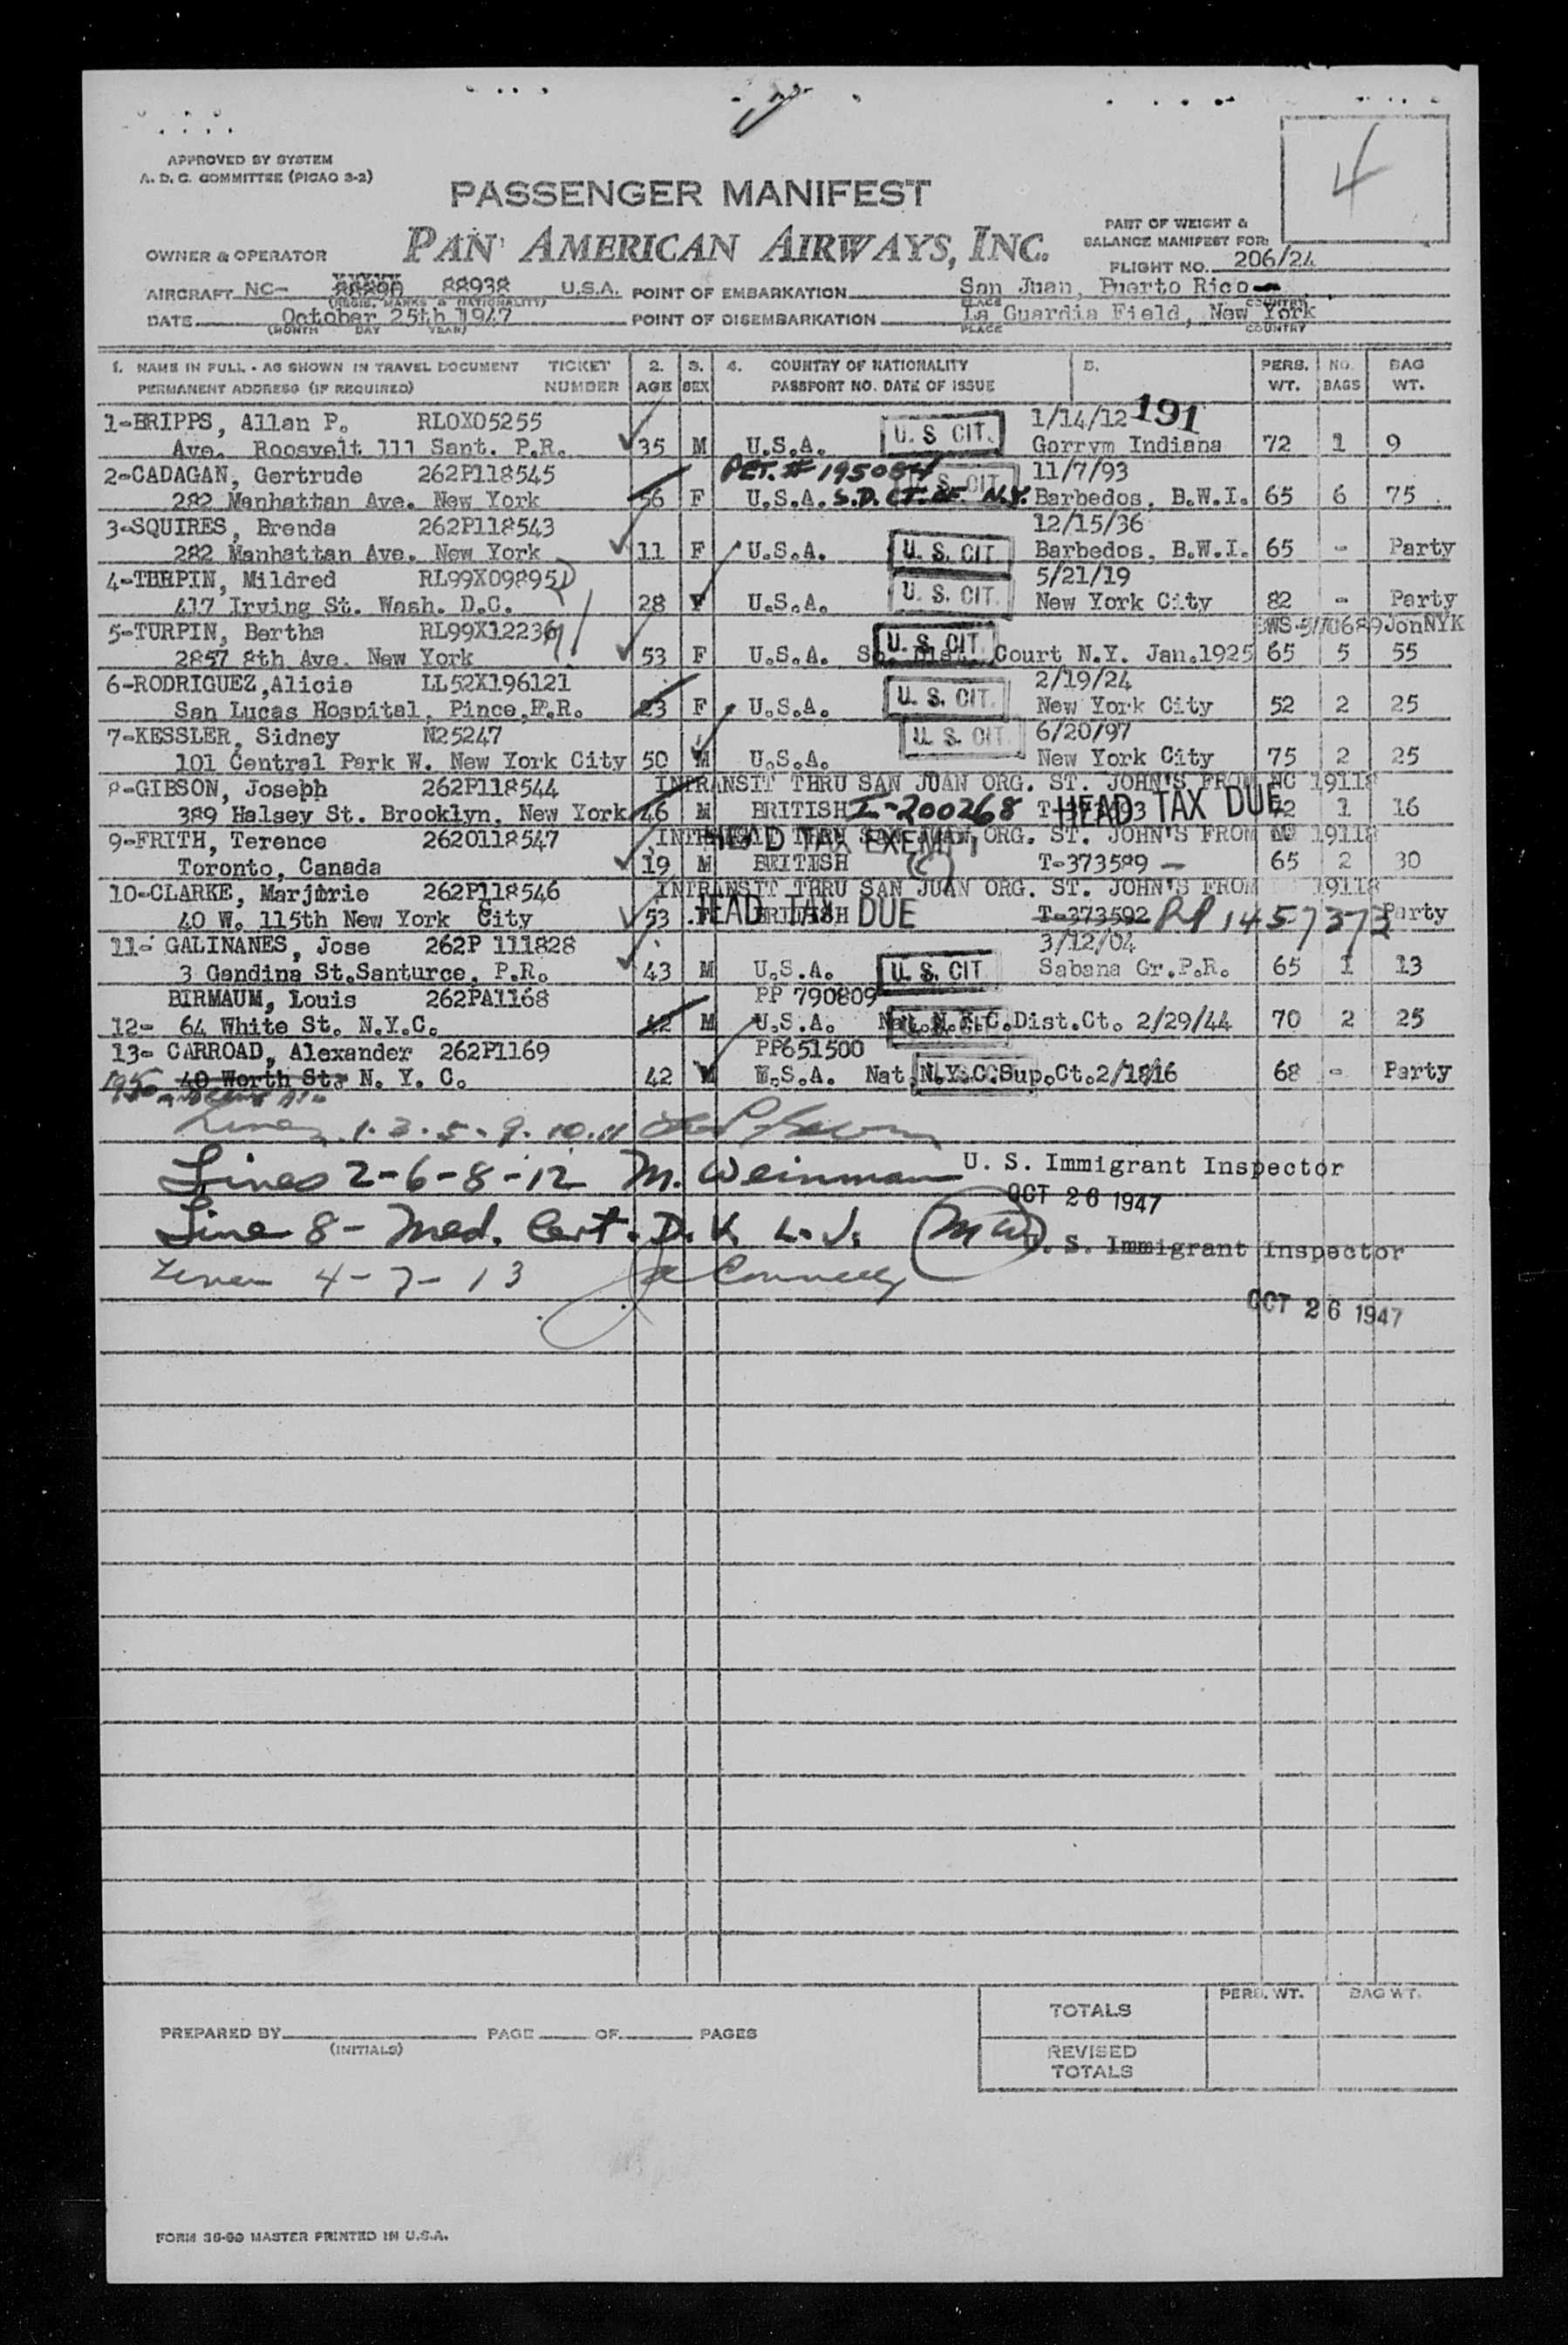 4
APPROVED BY SYSTEM
A. D. C. COMMITTEE (PICAO 3-2)
PASSENGER MANIFEST
PAN AMERICAN AIRWAYS, INC.
PART OF WEIGHT &
BALANCE MANIFEST FOR:
FLIGHT NO. 206/24
OWNER & OPERATOR
AIRCRAFT NC- 88938 U.S.A. POINT OF EMBARKATION San Juan, Puerto Rico
(REGIS. MARKS & NATIONALITY) PLACE COUNTRY
DATE October 25th 1947 POINT OF DISEMBARKATION La Guardia Field, New York
(MONTH DAY YEAR) PLACE COUNTRY
1. NAME IN FULL - AS SHOWN IN TRAVEL DOCUMENT TICKET 2. 3. 4. COUNTRY OF NATIONALITY 5. PERS. NO. BAG
PERMANENT ADDRESS (IF REQUIRED) NUMBER AGE SEX PASSPORT NO. DATE OF ISSUE WT. BAGS WT.
1-BRIPPS, Allan P. RLOX05255 1/14/12 191
Ave. Roosvelt 111 Sant. P.R. 35 M U.S.A. U. S CIT. Gorrym Indiana 72 1 9
2-CADAGAN, Gertrude 262P118545 PET. # 195084 11/7/93
282 Manhattan Ave. New York 56 F U.S.A. S.D. CT. OF N.Y. U. S. CIT. Barbedos, B.W.I. 65 6 75
3-SQUIRES, Brenda 262P118543 12/15/36
282 Manhattan Ave. New York 11 F U.S.A. U. S. CIT Barbedos, B.W.I. 65 - Party
4-TURPIN, Mildred RL99X09895 5/21/19
417 Irving St. Wash. D.C. 28 F U.S.A. U. S. CIT. New York City 82 - Party
5-TURPIN, Bertha RL99X12236 JonNYK
2857 8th Ave. New York 53 F U.S.A. U. S. CIT. Court N.Y. Jan.1925 65 5 55
6-RODRIGUEZ,Alicia LL52X196121 2/19/24
San Lucas Hospital, Pince,P.R. 23 F U.S.A. U. S. CIT. New York City 52 2 25
7-KESSLER, Sidney N25247 6/20/97
101 Central Park W. New York City 50 M U.S.A. U. S. CIT. New York City 75 2 25
8-GIBSON, Joseph 262P118544 INTRANSIT THRU SAN JUAN ORG. ST. JOHN'S FROM NC 19118
389 Halsey St. Brooklyn, New York 46 M BRITISH I-200268 HEAD TAX DUE 1 16
9-FRITH, Terence 2620118547 HEAD TAX EXEMPT ORG. ST. JOHN'S FROM NC 19118
Toronto, Canada 19 M BRITISH T-373589 - 65 2 30
10-CLARKE, Marjorie 262P118546 INTRANSIT THRU SAN JUAN ORG. ST. JOHN'S FROM 19118
40 W. 115th New York City 53 F BRITISH HEAD TAX DUE T-373592 RP 1457373 Party
11- GALINANES, Jose 262P 111828 3/12/04
3 Gandina St.Santurce, P.R. 43 M U.S.A. U. S. CIT Sabana Gr.P.R. 65 1 13
BIRMAUM, Louis 262PA1168 PP 790809
12- 64 White St. N.Y.C. 42 M U.S.A. Nat.N.Y.C.Dist.Ct. 2/29/44 70 2 25
13- CARROAD, Alexander 262P1169 PP651500
40 Worth St. N. Y. C. 42 M U.S.A. Nat.N.Y.C.Sup.Ct.2/18/16 68 - Party
Lines 1. 3. 5. 9. 10. 11
Lines 2-6-8-12 M. Weinman U. S. Immigrant Inspector
OCT 26 1947
Line 8- Med. Cert. (MW) U. S. Immigrant Inspector
Lines 4-7-13 Connelly
OCT 26 1947
TOTALS PERS. WT. BAG WT.
PREPARED BY PAGE OF PAGES
(INITIALS)
REVISED
TOTALS
FORM 36-99 MASTER PRINTED IN U.S.A.